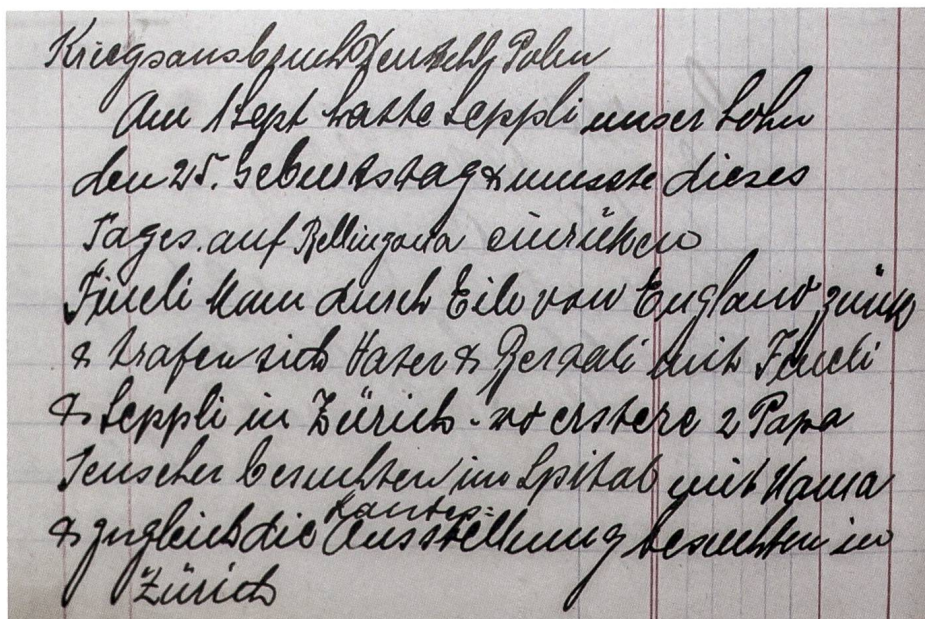 Kriegsausbruch Deutschl, Polen
Am 1 Sept hatte Seppli unser Sohn
den 25. Geburtstag & musste dieses
Tages. auf Bellinzona einrücken
Fineli kam durch Eile von England zürück
& trafen sich Vater & Bertheli mit Fineli
& Seppli in Zürich - wo erstere 2 Papa
besuchten im Spital mit Mama
& zugleich die Landes=
Ausstellung besuchten in
Zürich